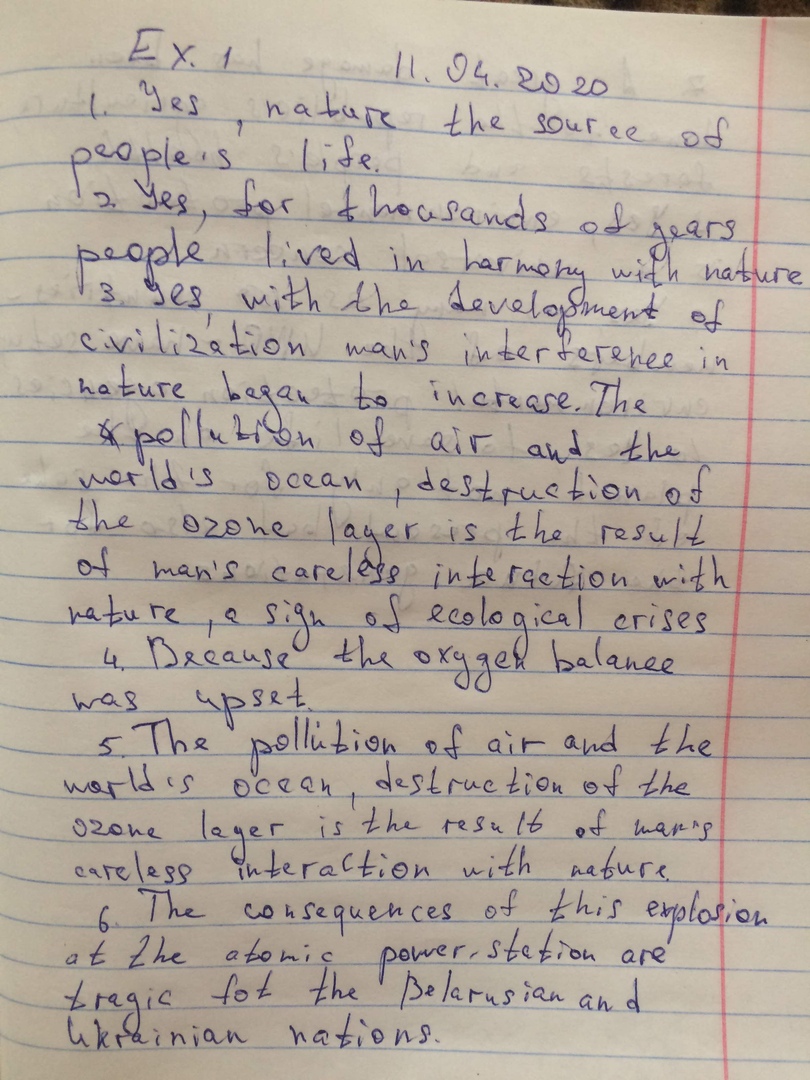 Ex. 1 11.04.2020
1. Yes, nature the source of
people's life.
2. Yes, for thousands of years
people lived in harmony with nature
3. Yes, with the development of
civilization man's interference in
nature began to increase. The
pollution of air and the
world's ocean, destruction of
the ozone layer is the result
of man's careless interaction with
nature, a sign of ecological crises
4. Because the oxygen balance
was upset.
5. The pollution of air and the
world's ocean, destruction of the
ozone layer is the result of man's
careless interaction with nature.
6. The consequences of this explosion
at the atomic power-station are
tragic fot the Belarusian and
Ukrainian nations.